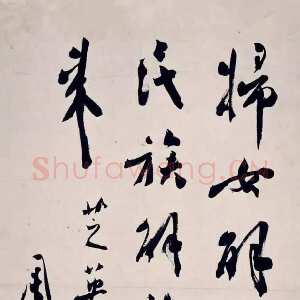 婦女解
民族解
来
芝英
周
Shufawang.CN